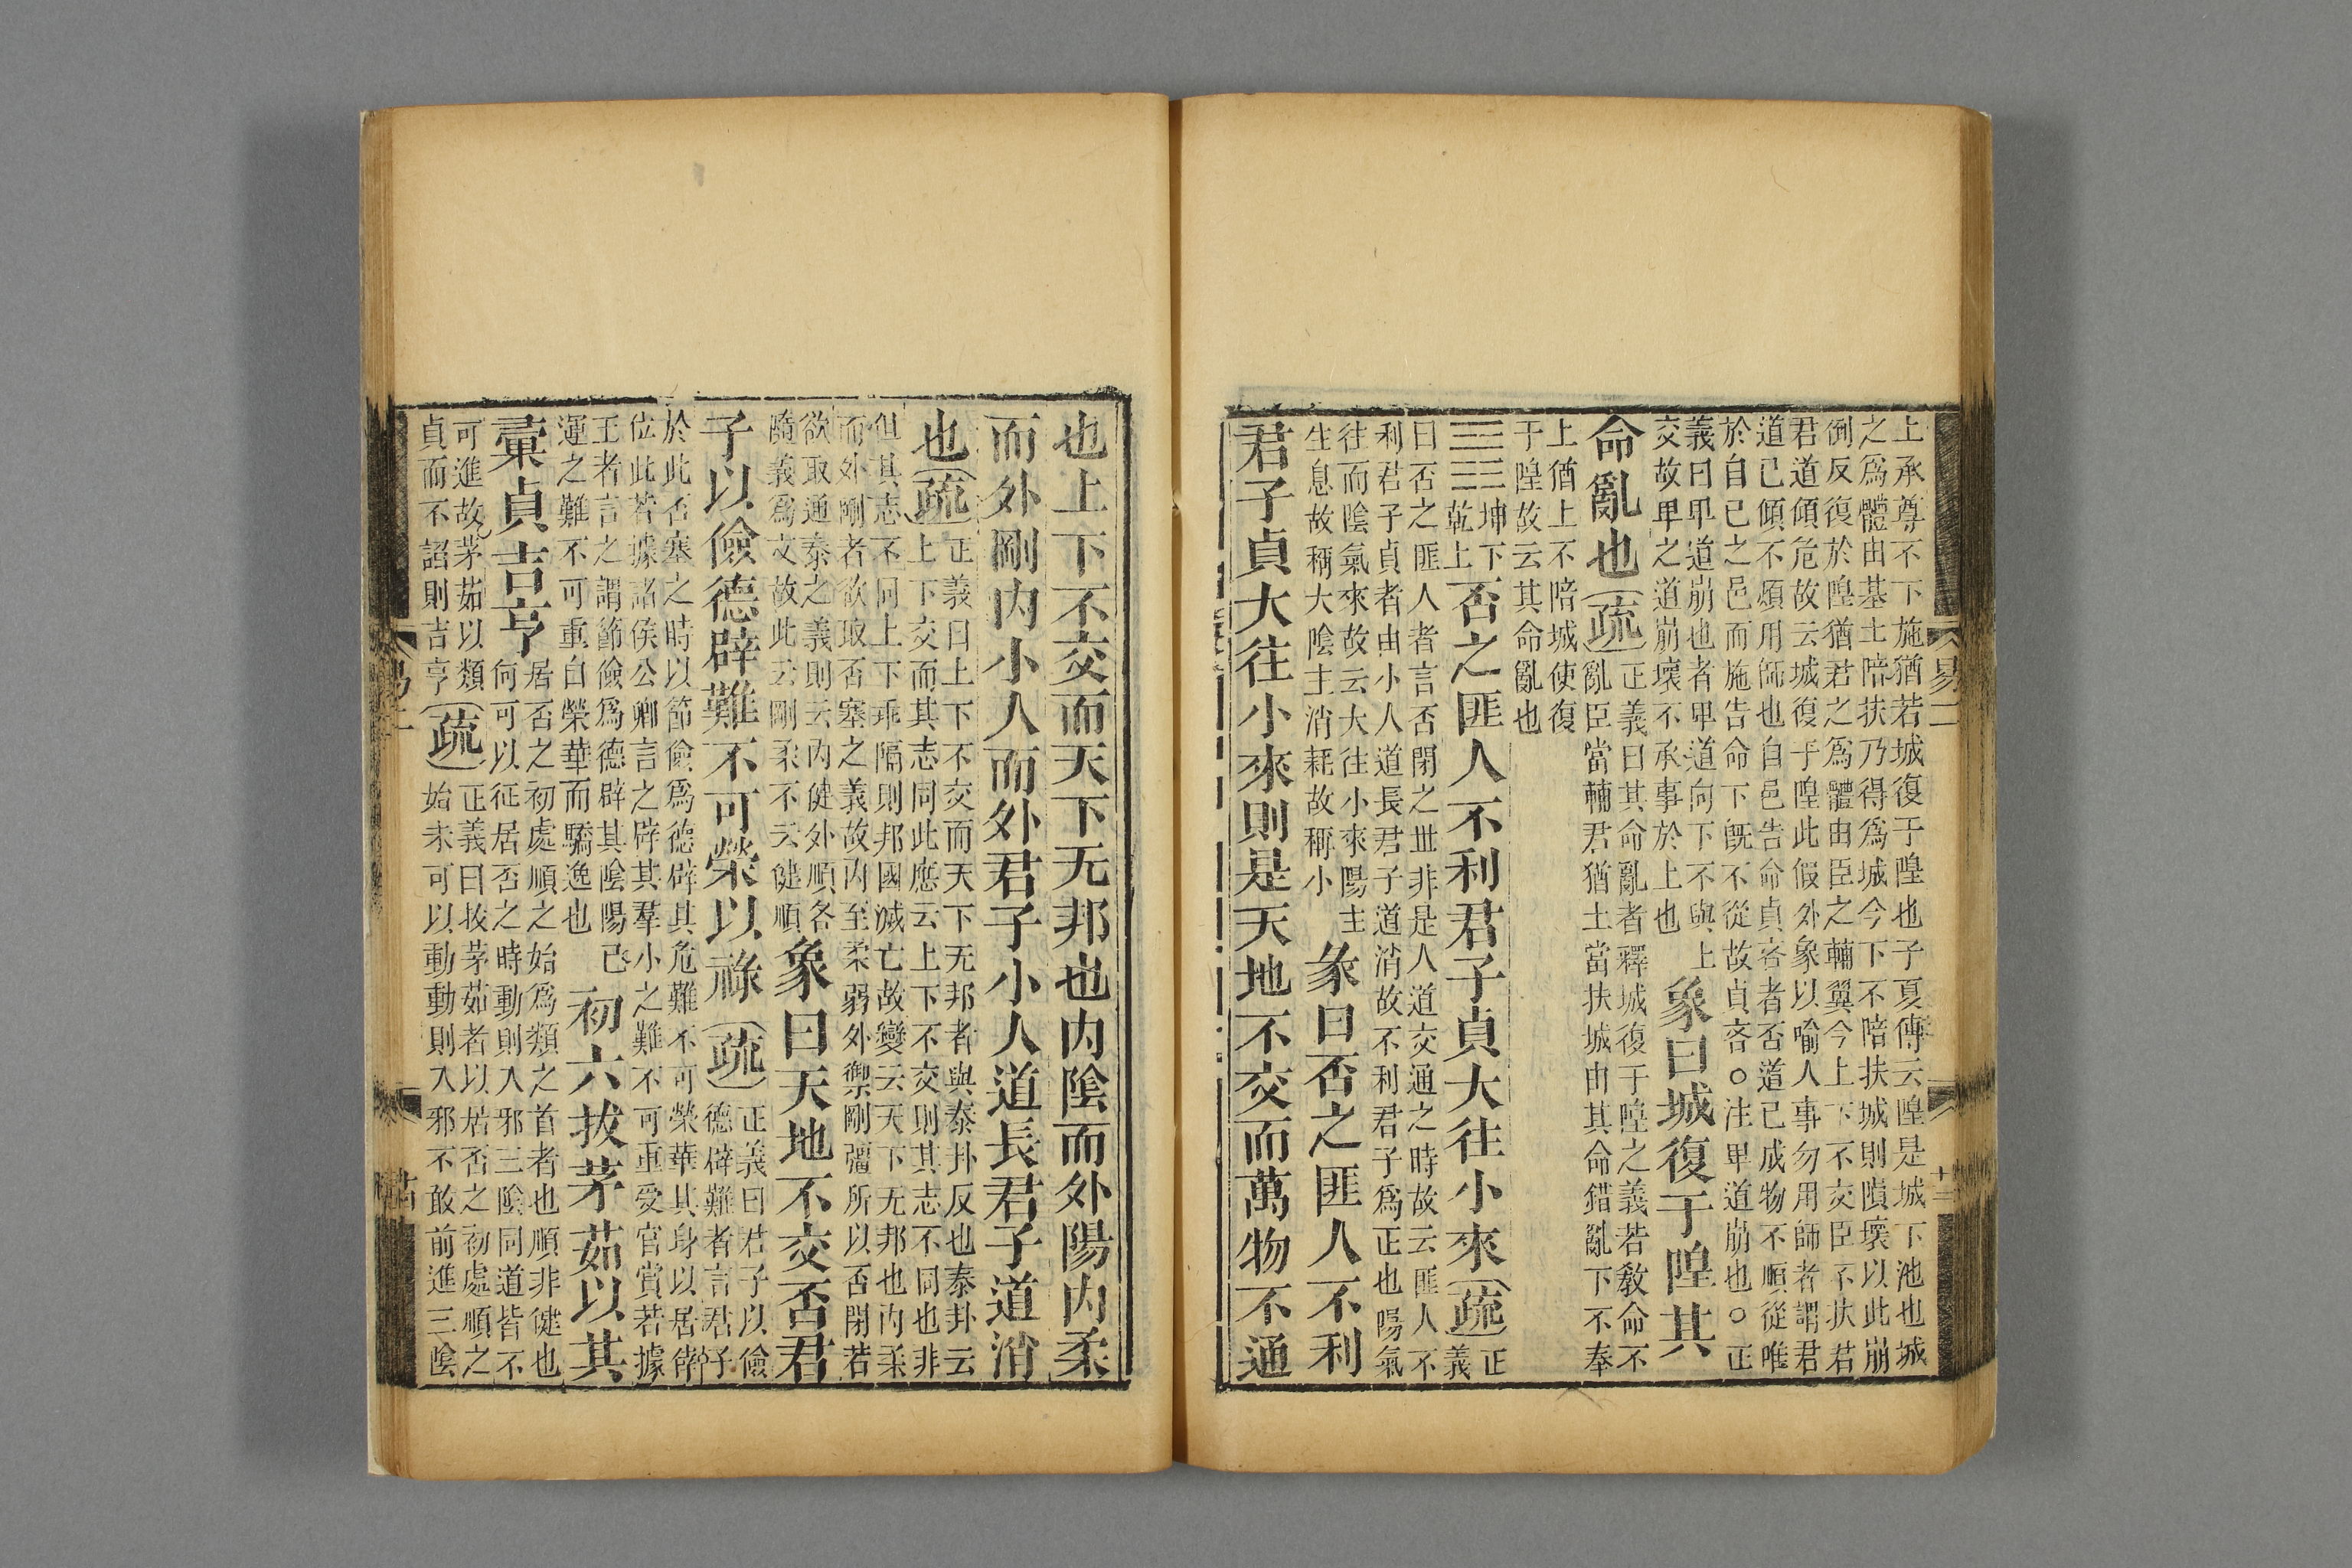 上承尊不下施猶若城復于隍也子夏傳云隍是城下池也城
之爲體由基土陪扶乃得爲城今下不陪扶城則隤壞以此崩
倒反復於隍猶君之爲體由臣之輔翼今上下不交臣不扶君
君道傾危故云城復于隍此假外象以喻人事勿用師者謂君
道已傾不煩用師也自邑告命貞吝者否道已成物不順從唯
於自己之邑而施告命下旣不從故貞吝○注卑道崩也○正
義曰卑道崩也者卑道向下不與上
交故卑之道崩壞不承事於上也
象曰城復于隍其
命亂也疏
正義曰其命亂者釋城復于隍之義若敎命不
亂臣當輔君猶土當扶城由其命錯亂下不奉
上猶上不陪城使復
于隍故云其命亂也
坤下
乾上
否之匪人不利君子貞大往小來疏
正
義
曰否之匪人者言否閉之世非是人道交通之時故云匪人不
利君子貞者由小人道長君子道消故不利君子爲正也陽氣
往而陰氣來故云大往小來陽主
生息故稱大陰主消耗故稱小
彖曰否之匪人不利
君子貞大往小來則是天地不交而萬物不通
也上下不交而天下无邦也內陰而外陽內柔
而外剛內小人而外君子小人道長君子道消
也疏
正義曰上下不交而天下无邦者與泰卦反也泰卦云
上下交而其志同此應云上下不交則其志不同也非
但其志不同上下乖隔則邦國滅亡故變云天下无邦也內柔
而外剛者欲取否塞之義故內至柔弱外禦剛彊所以否閉若
欲取通泰之義則云內健外順各
隨義爲文故此云剛柔不云健順
象曰天地不交否君
子以儉德辟難不可榮以祿疏
正義曰君子以儉
德辟難者言君子
於此否塞之時以節儉爲德辟其危難不可榮華其身以居倖
位此若據諸侯公卿言之辟其羣小之難不可重受官賞若據
王者言之謂節儉爲德辟其陰陽己
運之難不可重自榮華而驕逸也
初六拔茅茹以其
彙貞吉亨
居否之初處順之始爲類之首者也順非健也
何可以征居否之時動則入邪三陰同道皆不
可進故茅茹以類
貞而不諂則吉亨
疏
正義曰拔茅茹者以居否之初處順之
始未可以動動則入邪不敢前進三陰
易二
十三